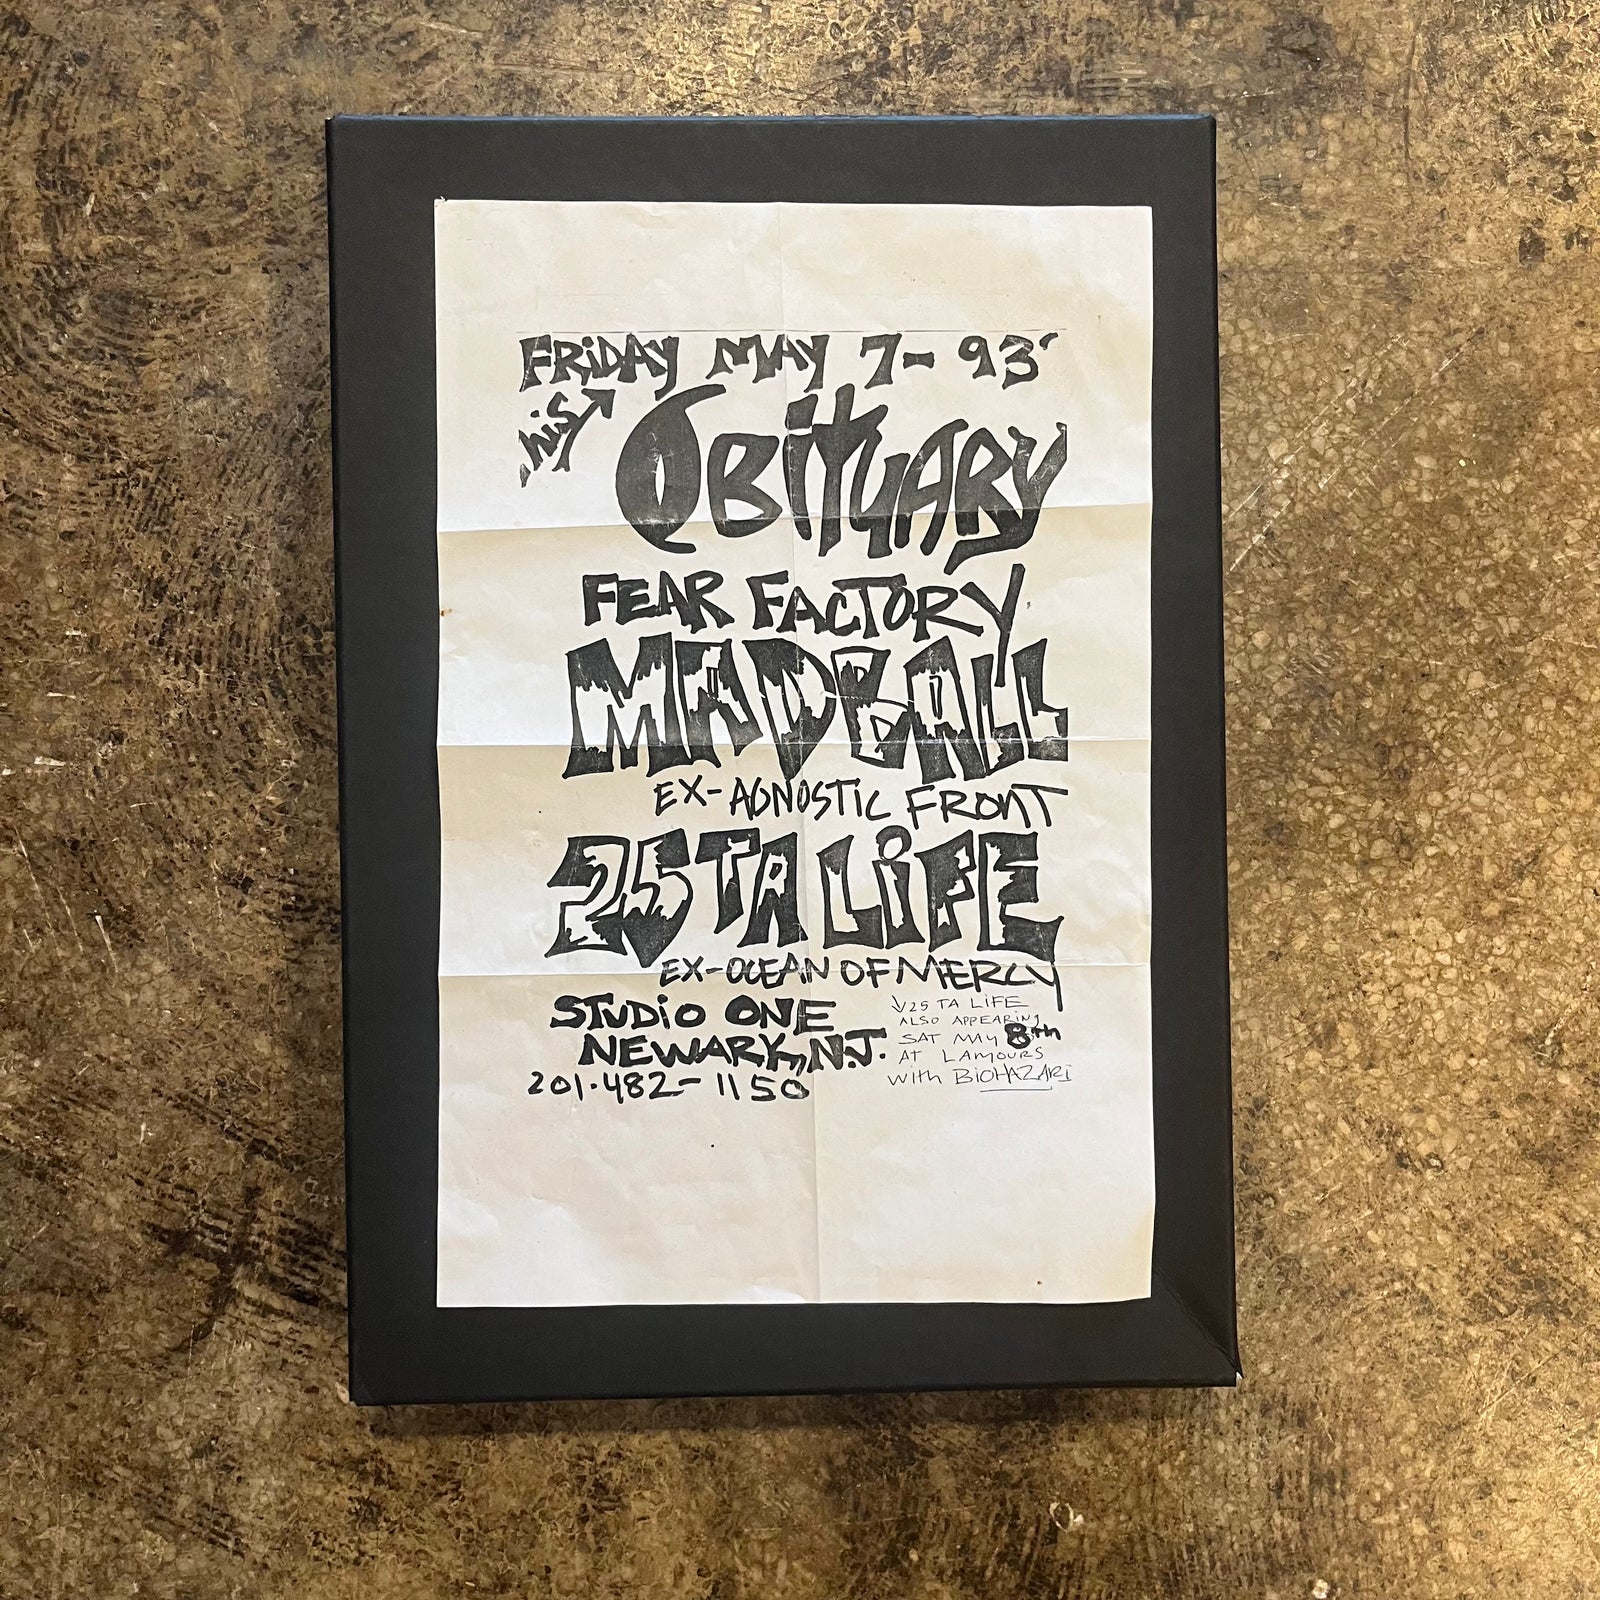 FRiDAY MAY 7-93'
his
OBiTUARY
FEAR FACTORY
MADBALL
EX-AGNOSTIC FRONT
25 TA LiFE
EX-OCEAN OF MERCY
STUDiO ONE
NEWARK, N.J.
201·482-1150
25 TA LiFE
ALSO APPEARING
SAT MAY 8th
AT LAMOURS
with BiOHAZARd